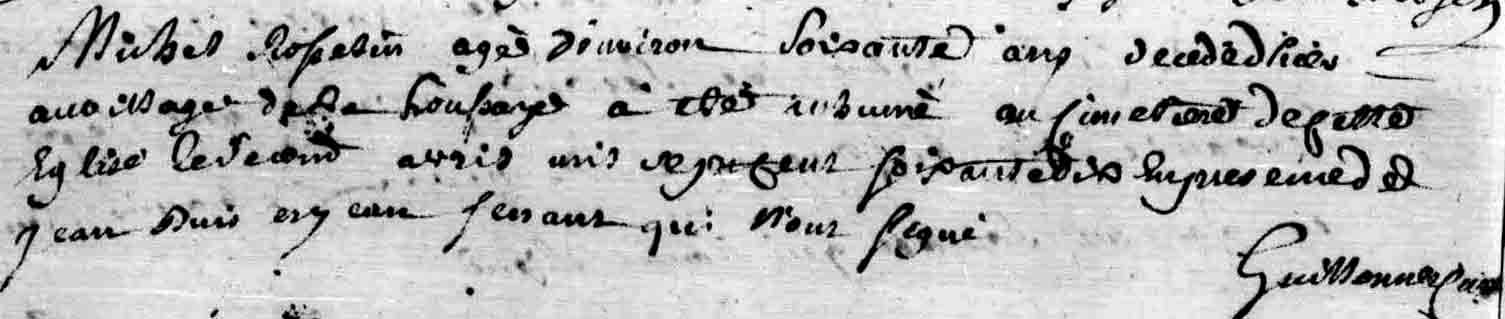 Michel Rosselin agé d'environ soisante ans decedé hier
au village de la houssaye a eté inhumé au cimetiere de cette
Eglise le second avril mil sept cent soisante dix En presence de
jean Puis et jean ferrant qui n'ont signé
Guillonner